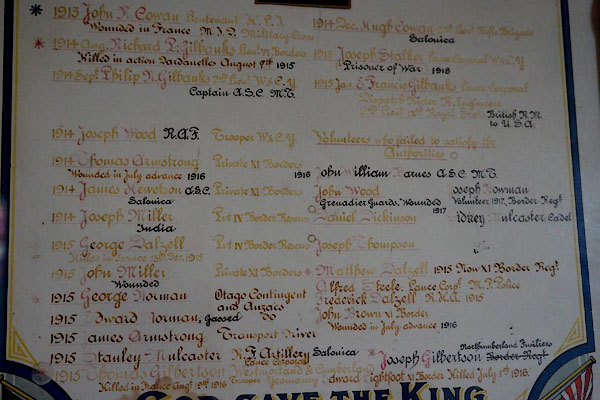 1913 John R. Cowan Lieutenant K.P.I.
Wounded in France M.I.D. Military Cross
1914 Aug. Richard P. Gilbanks Lieut. Borders
Killed in action Dardanelles August 9th 1915
1914 Sept. Philip R. Gilbanks 2nd Lieu. W & C.Y
Captain A.S.C. M.T.
1914 Joseph Wood R.A.F. Trooper W & C.Y
1914 Thomas Armstrong Private XI Borders
Wounded in July advance 1916
1914 James Hewetson A.S.C. Private XI Borders
Salonica
1914 Joseph Miller Pvt IV Border Reserve
India
1915 George Dalzell Pvt IV Border Reserve
Killed in France Dec. 1915
1915 John Miller Private XI Borders
Wounded
1915 George Norman Otago Contingent
and Anzacs
1915 Edward Norman, Gassed Do
1915 James Armstrong Transport Driver
1915 Stanley Mulcaster R.F. Artillery Salonica
Lance Corporal
1915 Thomas Gilbertson Westmorland & Cumberland
Killed in France Augt 19th 1916 Trooper Yeomanry
1914 Dec. Hugh Cowan 2nd Lieu Rifle Brigade
Salonica
1915 Joseph Stalker Lance Corporal W & C.Y
Prisoner of War 1918
1915 Jan E Francis Gilbanks Lance Corporal
Dispatch Rider R. Engineers
2nd Lieu Royal Scots British R.M.
to U.S.A.
Volunteers who failed to satisfy the
Authorities
1916 John William Barnes A.S.C. M.T.
John Wood Joseph Bowman
Grenadier Guards. Wounded 1917 Volunteer 1917, Border Regt
Daniel Dickinson Sidney Mulcaster Cadet
Joseph Thompson
Matthew Dalzell 1915 Now XI Border Regt
Alfred Steele, Lance Corpl M.F. Police
Frederick Dalzell R.H.A. 1915
John Brown XI Border
Wounded in July advance 1916
Northumberland Fusiliers
Joseph Gilbertson Border Regt
Edward Lightfoot XI Border Killed July 1st 1916.
GOD SAVE THE KING